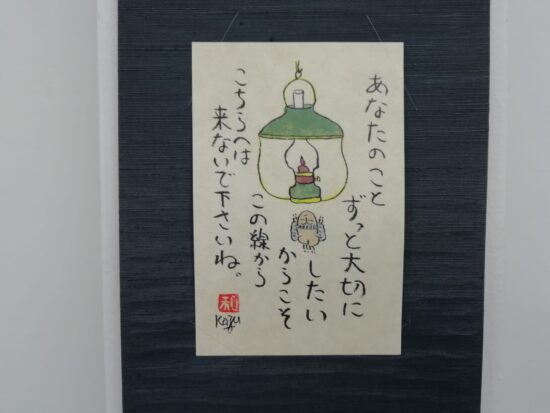 あなたのこと
ずっと大切に
したい
からこそ
この線から
こちらへは
来ないで下さいね。
KAZU